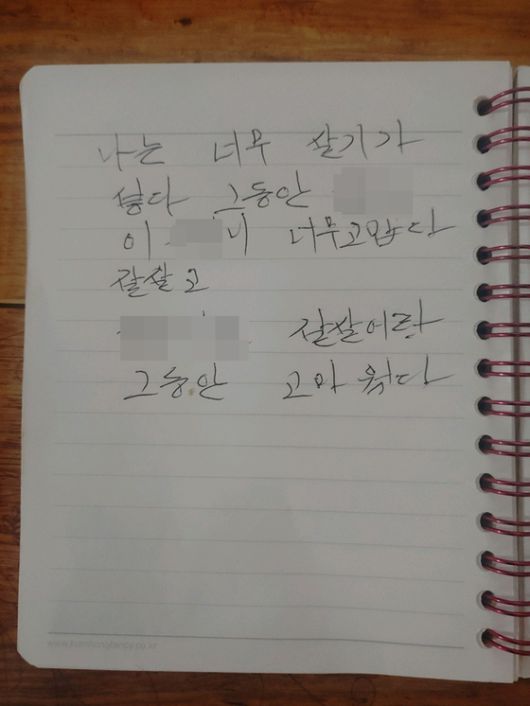 나는 너무 살기가
싫다 그동안
이 니 너무고맙다
잘살고
잘살이라
그동안 고마웠다